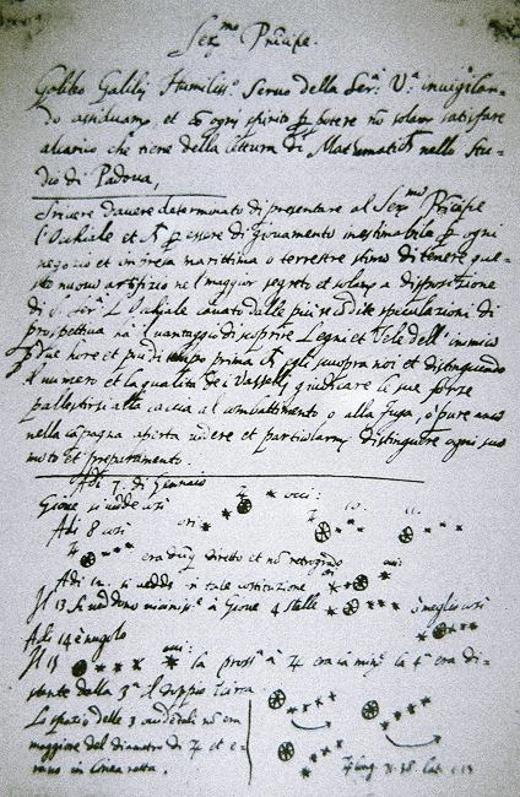 Ser.mo Prīcipe.
Galileo Galilei Humiliss.o Seruo della Ser.a V.a inuigilan-
do assiduamte, et cō ogni spirito p potere nō solam satisfare
alcarico che tiene della lettura di Mathematich nello Stu-
dio di Padoua,
Scriuere dauere determinato di presentare al Ser.mo Prīcipe
l'Occhiale et p essere di giouamento inestimabile p ogni
negozio et impresa marittima o terrestre stimo di tenere que-
sto nuouo artifizio nel maggior segreto et solam a disposizione
di S. Ser.a L'Occhiale cauato dalle più recōdite speculazioni di
prospettiua ha il uantaggio di scoprire Legni et Vele dell'inimico
p due hore et più di tempo prima ch egli scuopra noi et distinguendo
il numero et la qualità dei Vasselli giudicare le sue forze
pallestirsi alla caccia al combattimento o alla fuga, o pure anco
nella cāpagna aperta uedere et particolarm distinguere ogni suo
moto et preparamento.
Adi 7. di Gennaio
Gioue si uede cosi occi:
Adi 8 cosi ori: 10. 11.
era dūq diretto et nō retrogrado
Adi 12. si uedde in tale costituzione
Il 13 si ueddono uicinis.e à Gioue 4 stelle ò meglio cosi
Adi 14 è nugolo
Il 15 la pross.a à ♃ era la min.e la 4.a era di-
stante dalla 3.a il doppio Circa
Lo spazio delle 3 occidētali nō era
maggiore del diametro di ♃ et e-
rano in linea retta.
♃ long. 71.38 Lat. 1.13